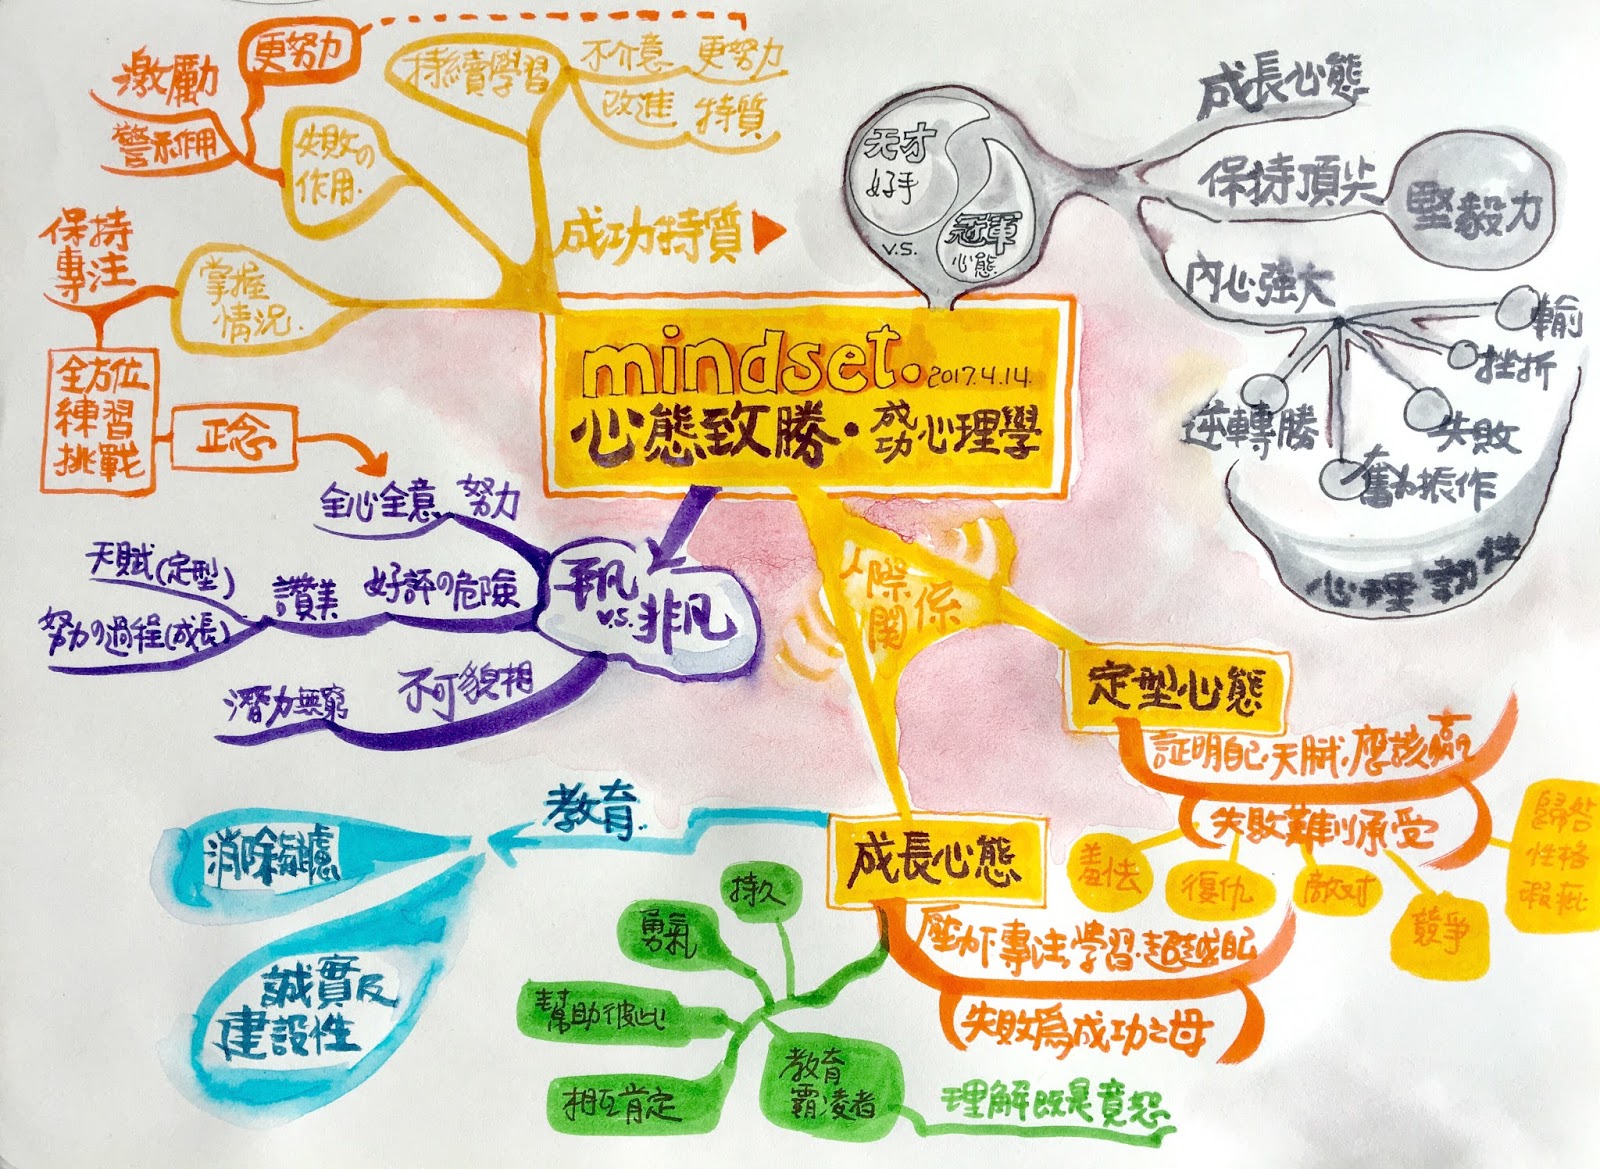 mindset. 2017.4.14.
心態致勝・成功心理學
成功特質
持續學習
不介意 更努力
改進 特質
失敗の
作用.
更努力
激勵
警示作用
掌握
情況.
保持
專注
全方位
練習
挑戰
正念
天才
好手
v.s.
冠軍
心態
成長心態
保持頂尖
堅毅力
內心強大
輸
挫折
失敗
奮力振作
逆轉勝
心理韌性
平凡
v.s.非凡
全心全意 努力
好評の危險
讚美
天賦(定型)
努力の過程(成長)
不可貌相
潛力無窮
人際
關係
定型心態
証明自己・天賦・應該贏
失敗難以承受
羞怯
復仇
敵对
競爭
歸咎
性格
瑕疵
成長心態
壓力下專注,學習・超越自己
失敗為成功之母
教育.
消除疑慮
誠實及
建設性
持久
勇氣
幫助彼此
相互肯定
教育
霸凌者